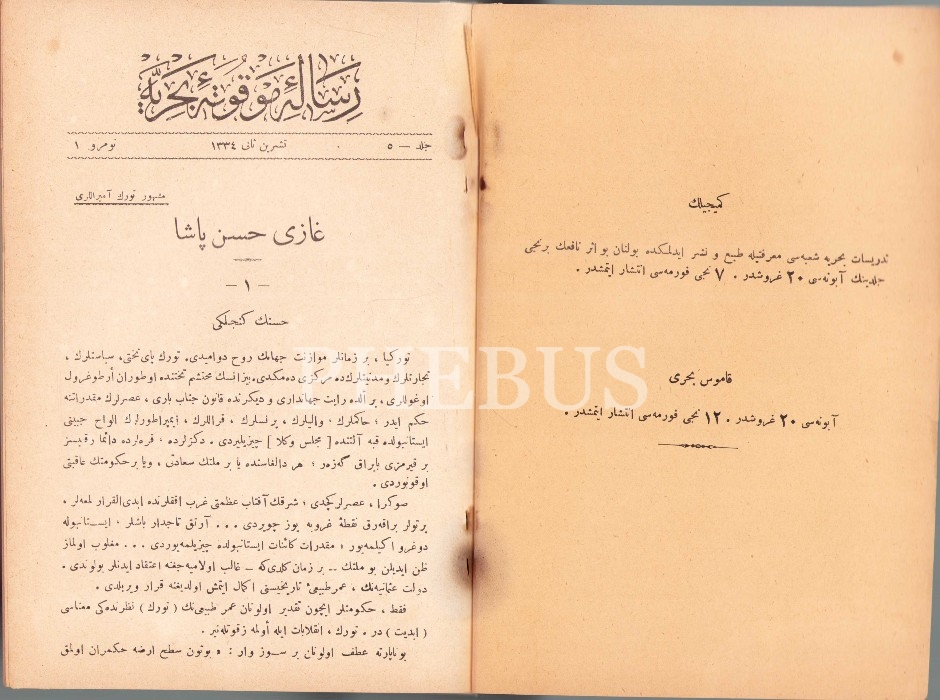 رسالهٔ موقوتهٔ بحريه
جلد — ٥ تشرين ثانى ١٣٣٤ نومرو ١
مشهور تورك آميراللرى
غازى حسن پاشا
— ١ —
حسنك كنجلكى
توركيا ، بر زمانلر موازنت جهانك روح دواميدى. تورك پاى تختى، سياستلرك ،
تجارتلرك ومدنيتلرك ده مركزى ده مكدى. بيزانسك محتشم تختنده اوطوران أرطوغرول
اوغوللارى ، بر آلده رايت جهاندارى و ديكرنده قانون جناب بارى ، عصرلرك مقدراتنه
حكم ايدر ؛ حاكملك ، واليلرك ، پرنسلرك ، قراللرك ، ايمپراطورلرك الواح جبينى
ايستانبولده قبه آلتنده [ مجلس وكلا ] چيزيليردى . دكزلرده ، قره‌لرده دائما رقيبسز
بر قيرمزى بايراق گه‌زه‌ر ؛ هر دالغاسنده يا بر ملتك سعادتى ، ويا بر حكومتك عاقبتى
اوقونوردى .
صوكرا ، عصرلر كچدى ؛ شرقك آفتاب عظمتى غرب افقلرنده ابدى القرار لمعه‌لر ،
پرتولر براقه‌رق نقطهٔ غروبه يوز چويردى . . . آرتق تاجدار باشلر ، ايستانبوله
دوغرو اكيلمه‌يور ؛ مقدرات كائنات ايستانبولده چيزيلمه‌يوردى . . . مغلوب اولماز
ظن ايديلن بو ملتك — بر زمان كلدى كه — غالب اولاميه‌جغنه اعتقاد ايدنلر بولوندى .
دولت عثمانيه‌نك ، عمر طبيعىٔ تاريخيسنى اكمال ايتمش اولديغنه قرار ويريلدى .
فقط ، حكومتلر ايچون تقدير اولونان عمر طبيعى‌نك ( تورك ) نظرنده‌كى معناسى
( ابديت ) در . تورك ، انقلابات ايله أولمه‌ز قوتله‌نير .
بوناپارته عطف اولونان بر سوز وار : « بوتون سطح ارضه حكمران اولمق
كميجيلك
تدريسات بحريه شعبه‌سى معرفتيله طبع و نشر ايدلمكده بولنان بو اثر نافعك برنجى
جلدينك آبونه‌سى ٢٠ غروشدر . ٧ نجى فورمه‌سى انتشار ايتمشدر .
قاموس بحرى
آبونه‌سى ٢٠ غروشدر . ١٢ نجى فورمه‌سى انتشار ايتمشدر .
PHEBUS